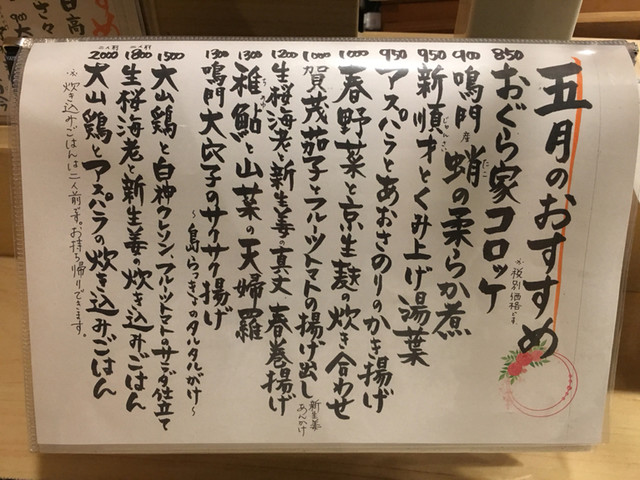 五月のおすすめ
※税別価格です
850 おぐら家コロッケ
900 鳴門産蛸の柔らか煮
たこ
950 新順才とくみ上げ湯葉
じゅんさい
950 アスパラとあおさのりのかき揚げ
1000 春野菜と京生麩の炊き合わせ
1000 賀茂茄子とフルーツトマトの揚げ出し
新生姜あんかけ
1200 生桜海老と新生姜の真丈 春巻揚げ
1300 稚鮎と山菜の天婦羅
1300 鳴門大穴子のサクサク揚げ
～島らっきょうのタルタルがけ～
1500 大山鶏と白神クレソン、フルーツトマトのサラダ仕立て
二人前 1800 生桜海老と新生姜の炊き込みごはん
二人前 2000 大山鶏とアスパラの炊き込みごはん
※炊き込みごはんは二人前です。お持ち帰りできます。